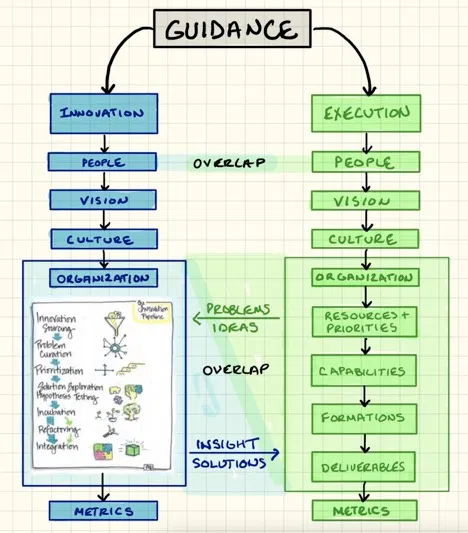 GUIDANCE
INNOVATION
PEOPLE
VISION
CULTURE
ORGANIZATION
An
Innovation
Pipeline
Innovation
Sourcing
Problem
Curation
Prioritization
Solution Exploration
Hypothesis Testing
Incubation
Refactoring
Integration
METRICS
OVERLAP
PROBLEMS
IDEAS
OVERLAP
INSIGHT
SOLUTIONS
EXECUTION
PEOPLE
VISION
CULTURE
ORGANIZATION
RESOURCES +
PRIORITIES
CAPABILITIES
FORMATIONS
DELIVERABLES
METRICS